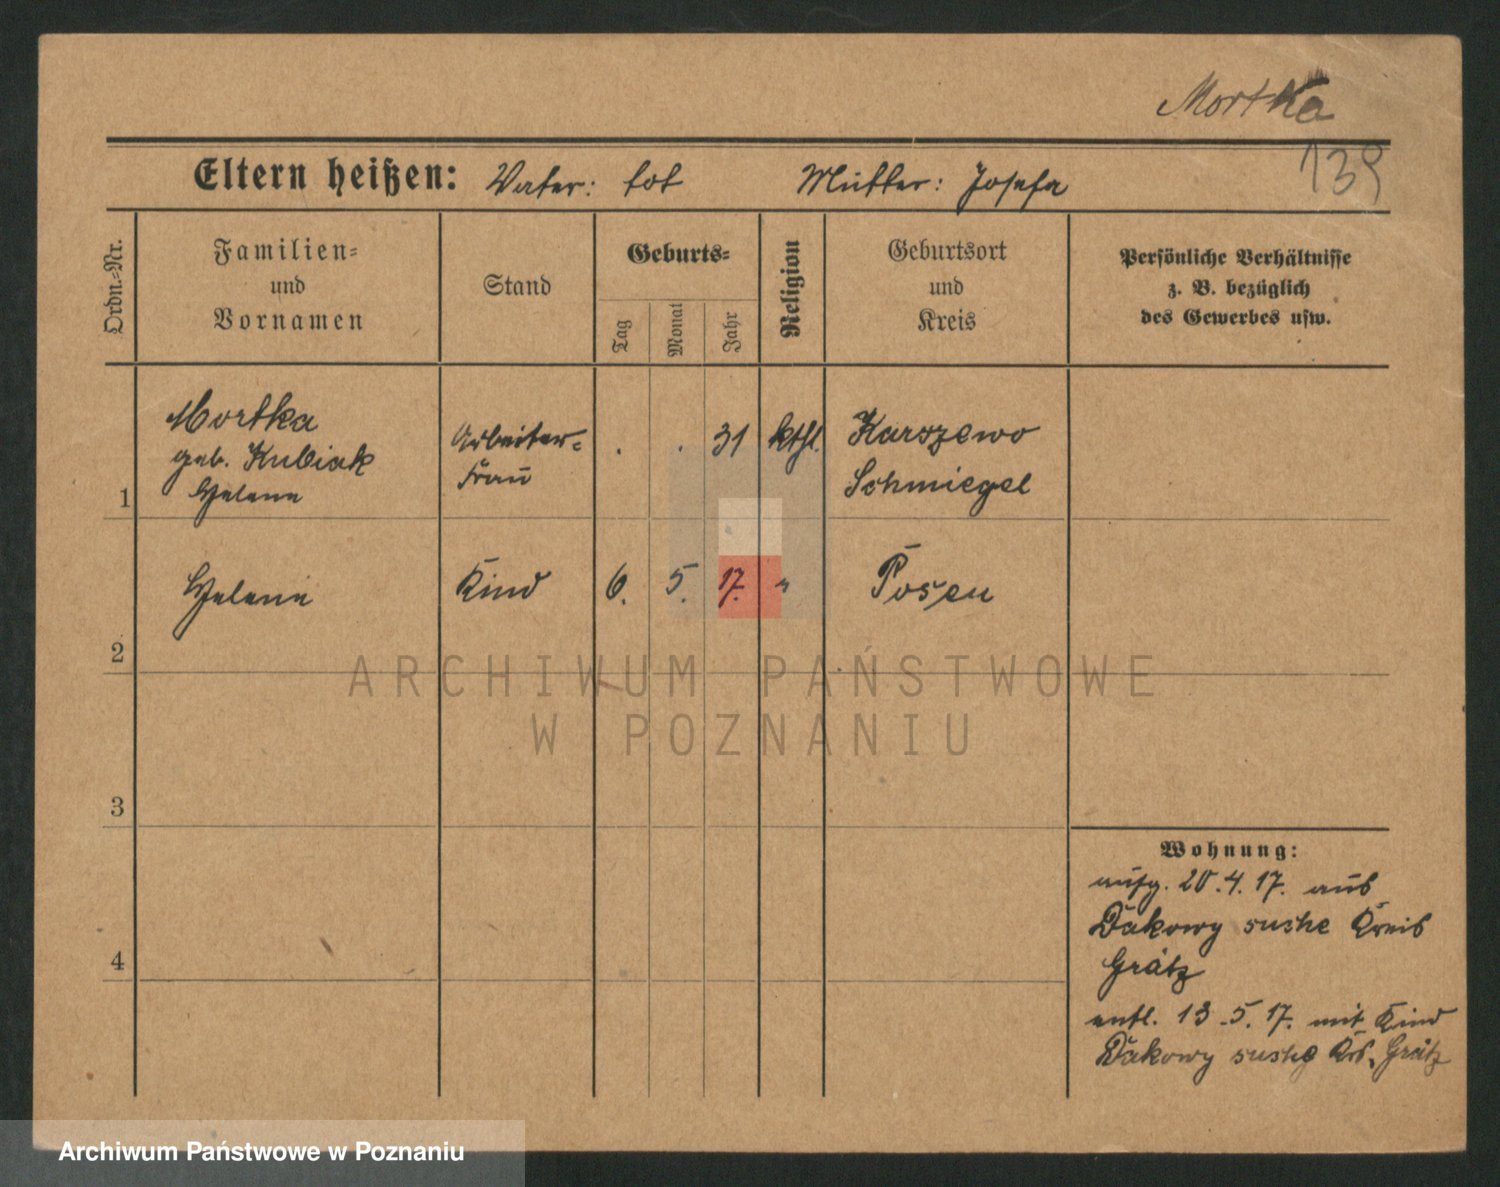 Mortka
139
Eltern heißen: Vater: tot Mutter: Josefa
Ordn.-Nr.
Familien-
und
Vornamen
Stand
Geburts-
Tag
Monat
Jahr
Religion
Geburtsort
und
Kreis
Persönliche Verhältnisse
z. B. bezüglich
des Gewerbes usw.
1
Mortka
geb. Kubiak
Helene
Arbeiter-
frau
. . 31 kthl.
Karszewo
Schmiegel
2
Helene
Kind
6. 5. 17. "
Posen
ARCHIWUM PAŃSTWOWE
W POZNANIU
3
4
Wohnung:
aufg. 20.4.17. aus
Dakowy suche Kreis
Grätz
entl. 13.5.17. mit Kind
Dakowy suche Krs. Grätz
Archiwum Państwowe w Poznaniu